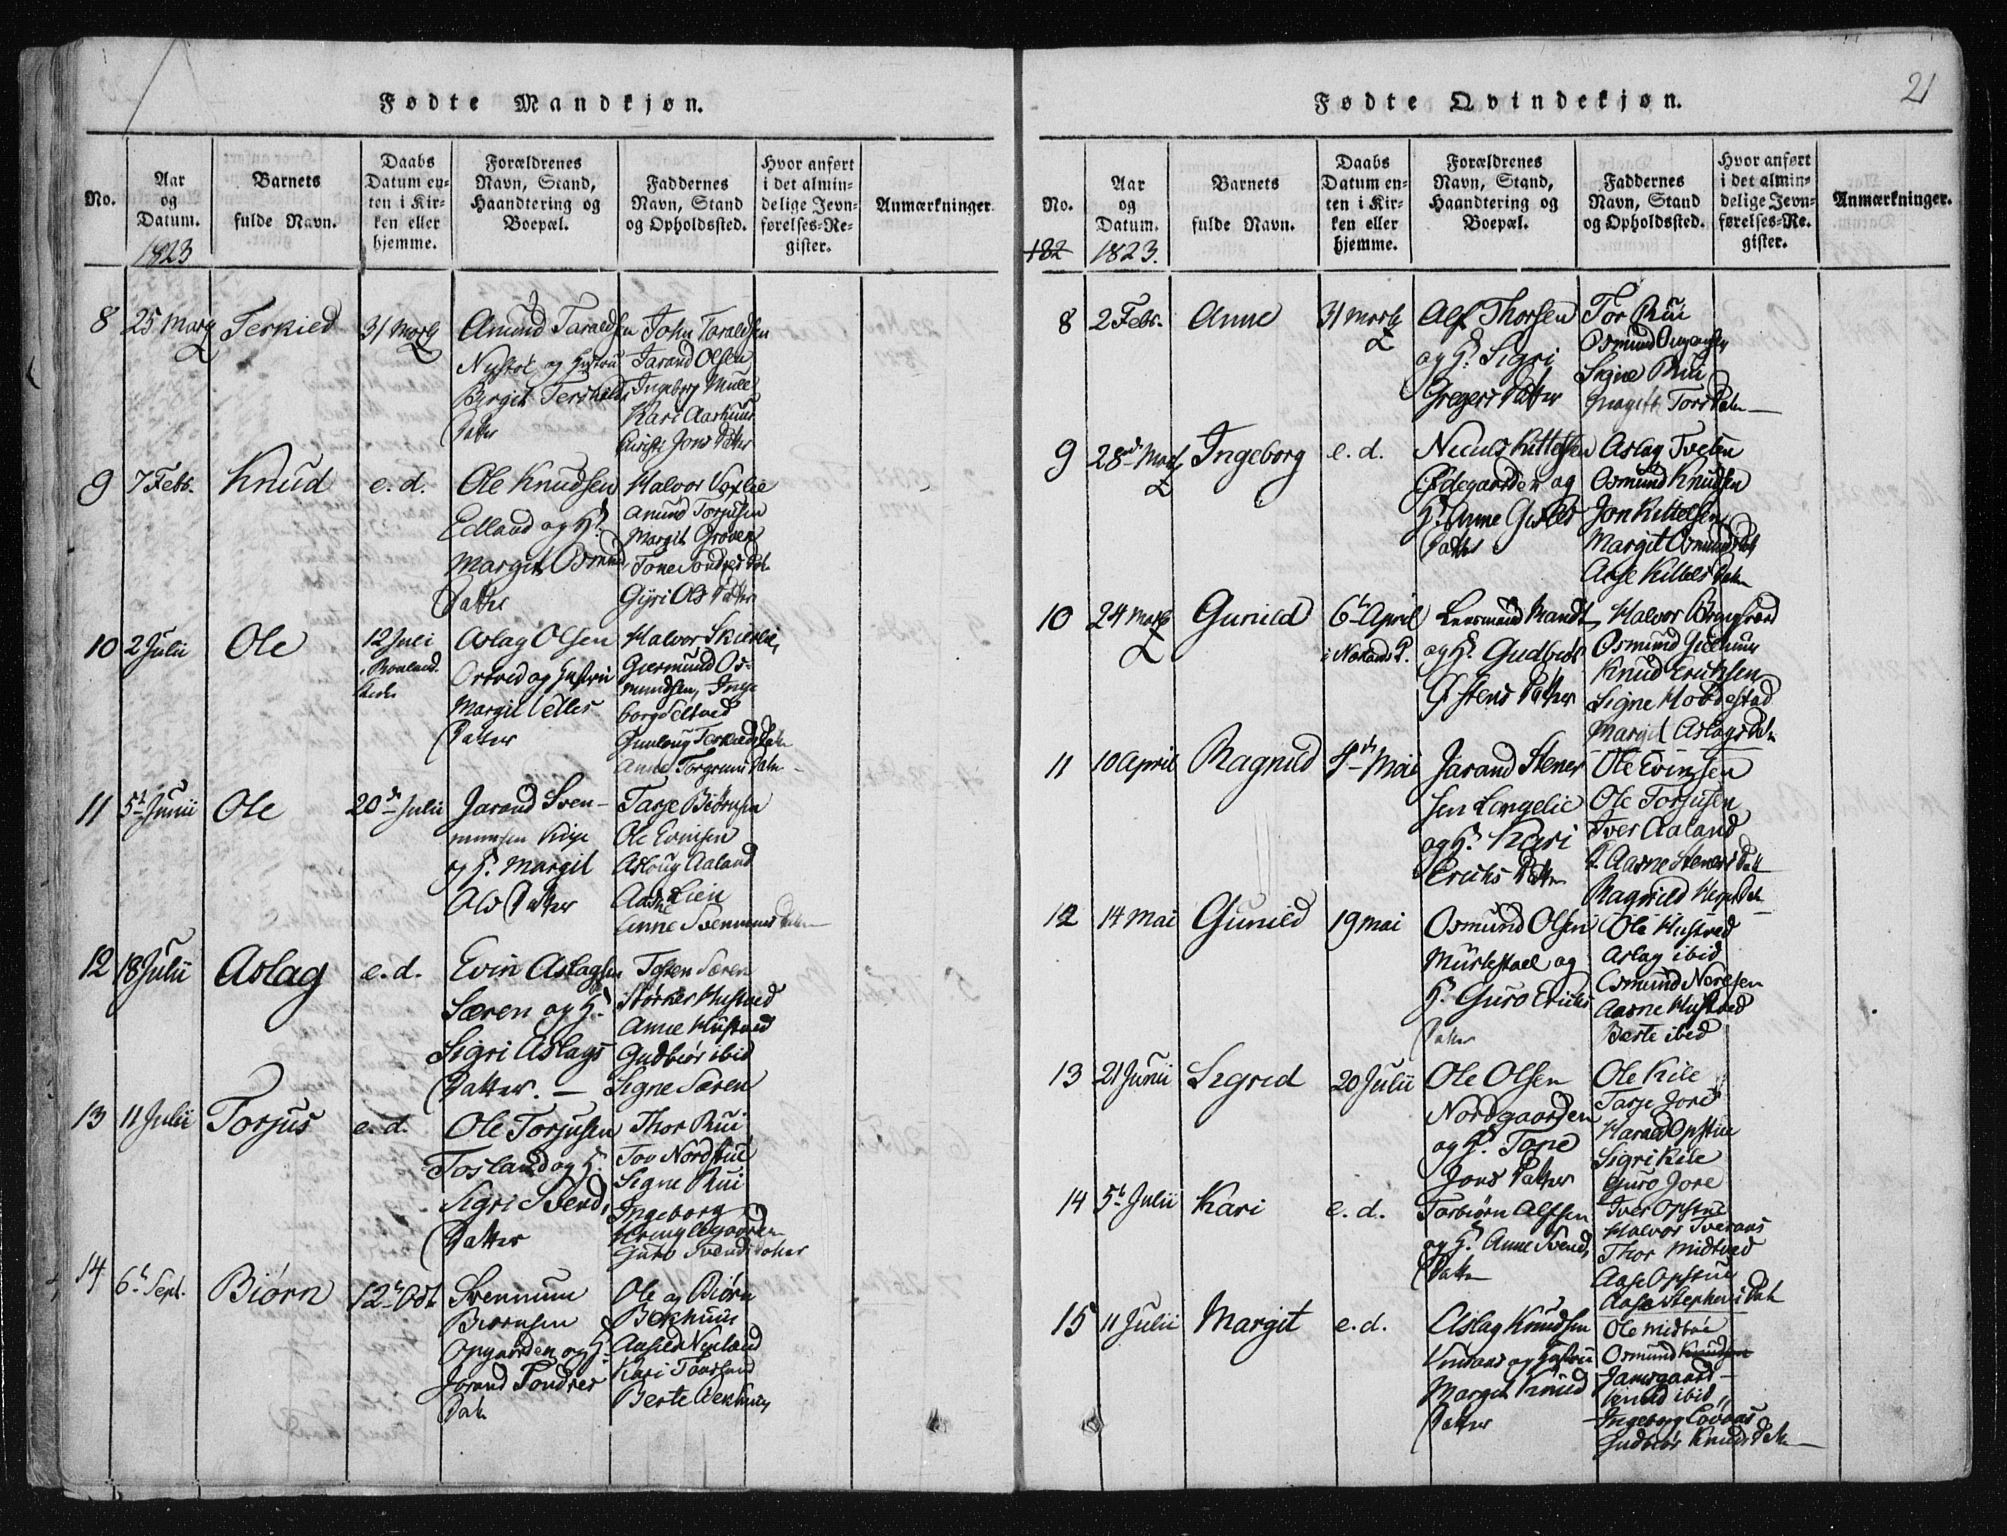 21
Fødte Mandkjøn.
No.
Aar
og
Datum.
1823
Barnets
fulde Navn.
Daabs
Datum en-
ten i Kir-
ken eller
hjemme.
Forældrenes
Navn, Stand,
Haandtering og
Boepæl.
Faddernes
Navn, Stand
og Opholdssted.
Hvor anført
i det almin-
delige Jevn-
førelses-Re-
gister.
Anmærkninger.
8
25 Marz
Terkied
31 Marz
Amund Taraldsen
og Hustru
Birgit
Datter
John Taraldsen
Tarand Olsen
Ingeborg
Kari Aarhuus
Jons Datter
9
7 Febr.
Knud
e. d.
Ole Knudsen
Edland og H.
Margit Osmunds
Datter
Halvor
Amund Torjusen
Margit Groven
Tone Sondres Dat.
Gyri Ols Datter
10
2 Julii
Ole
12 Juli
Aslag Olsen
og Hustru
Margit
Datter
Halvor
Giermund Os-
mundsen, Inge-
borg Seltved
Gunloug
Anne Torgrims Datr
11
5t Junii
Ole
20de Julii
Jarand Sven-
numsen Kiije
og H. Margit
Ols Datter
Tarje Biørnsen
Ole Evinsen
Asloug Aaland
Aasne Lien
Anne Svennums Dater
12
18 Julii
Aslag
e. d.
Evin Aslagsen
Særen og H.
Sigri Aslags
Datter. —
Særen
Størker Hustved
Anne Hustved
Gudbiør ibid
Signe Særen
13
11 Julii
Torjus
e. d.
Ole Torjusen
Tosland og H.
Sigri Svends
Datter
Thor Rui
Tov Nordstue
Signe Rui
Ingeborg
Guro Svends Dater
14
6t Sept.
Biørn
12t Odt.
Svennum
Biørnsen
Opgaarden og H.
Jorand Sondres
Datr
Ole og Biørn
Bekhuus
Aasild Nyeland
Kari
Berte Bekhuus
Fødte Qvindekjøn.
No.
182
Aar
og
Datum.
1823.
Barnets
fulde Navn.
Daabs
Datum en-
ten i Kir-
ken eller
hjemme.
Forældrenes
Navn, Stand,
Haandtering og
Boepæl.
Faddernes
Navn, Stand
og Opholdssted.
Hvor anført
i det almin-
delige Jevn-
førelses-Re-
gister.
Anmærkninger.
8
2 Febr.
Anne
31 Marz
Alf Thorsen
og H. Sigri
Gregers Datter
Tor Rui
Osmund
Signe Rui
Tors Datr
9
28de Marz
Ingeborg
e. d.
Kittelsen
Ødegaarden og
H. Anne
Datter
Aslag Tveten
Osmund Knudsen
Jon Kittelsen
Margit Osmunds Dat
Aase Kittels Datr
10
24 Marz
Gunild
6t April
Leensmand Mandt
og H. Gudbiør
Østens Datter
Halvor
Osmund
Knud Eriksen
Signe
Margit Aslags Datr
11
10 April
Ragnild
4de Mai
Jarand Stener
sen Langelie
og H. Kari
Erichs Datter
Ole Evinsen
Ole Torjusen
Iver Aaland
Aasne Steners Datt
Ragnild
12
14 Mai
Gunild
19 mai
Osmund Olsen
og
H. Guro Erichs
Dater
Ole Hustved
Aslag ibid
Osmund
Aasne Hustved
Berte ibid
13
21 Junii
Sigrid
20 Julii
Ole Olsen
Nordgaarden
og H. Tone
Jons Datter
Ole Kile
Tarje Jore
Harald Opstue
Sigri Kile
Guro Jore
14
5t Julii
Kari
e. d.
Torbiørn Alfsen
og H. Anne Svends
Datter
Iver Opstue
Halvor Tveraas
Thor Midtved
Aase Opstue
Aase Stephens Dat
15
11 Julii
Margit
e. d.
Aslag Knudsen
og Hustru
Margit Knud
Datter
Ole Midbøe
Osmund Knudsen
Knud ibid
Ingeborg
Gudbiør Knuds Datr